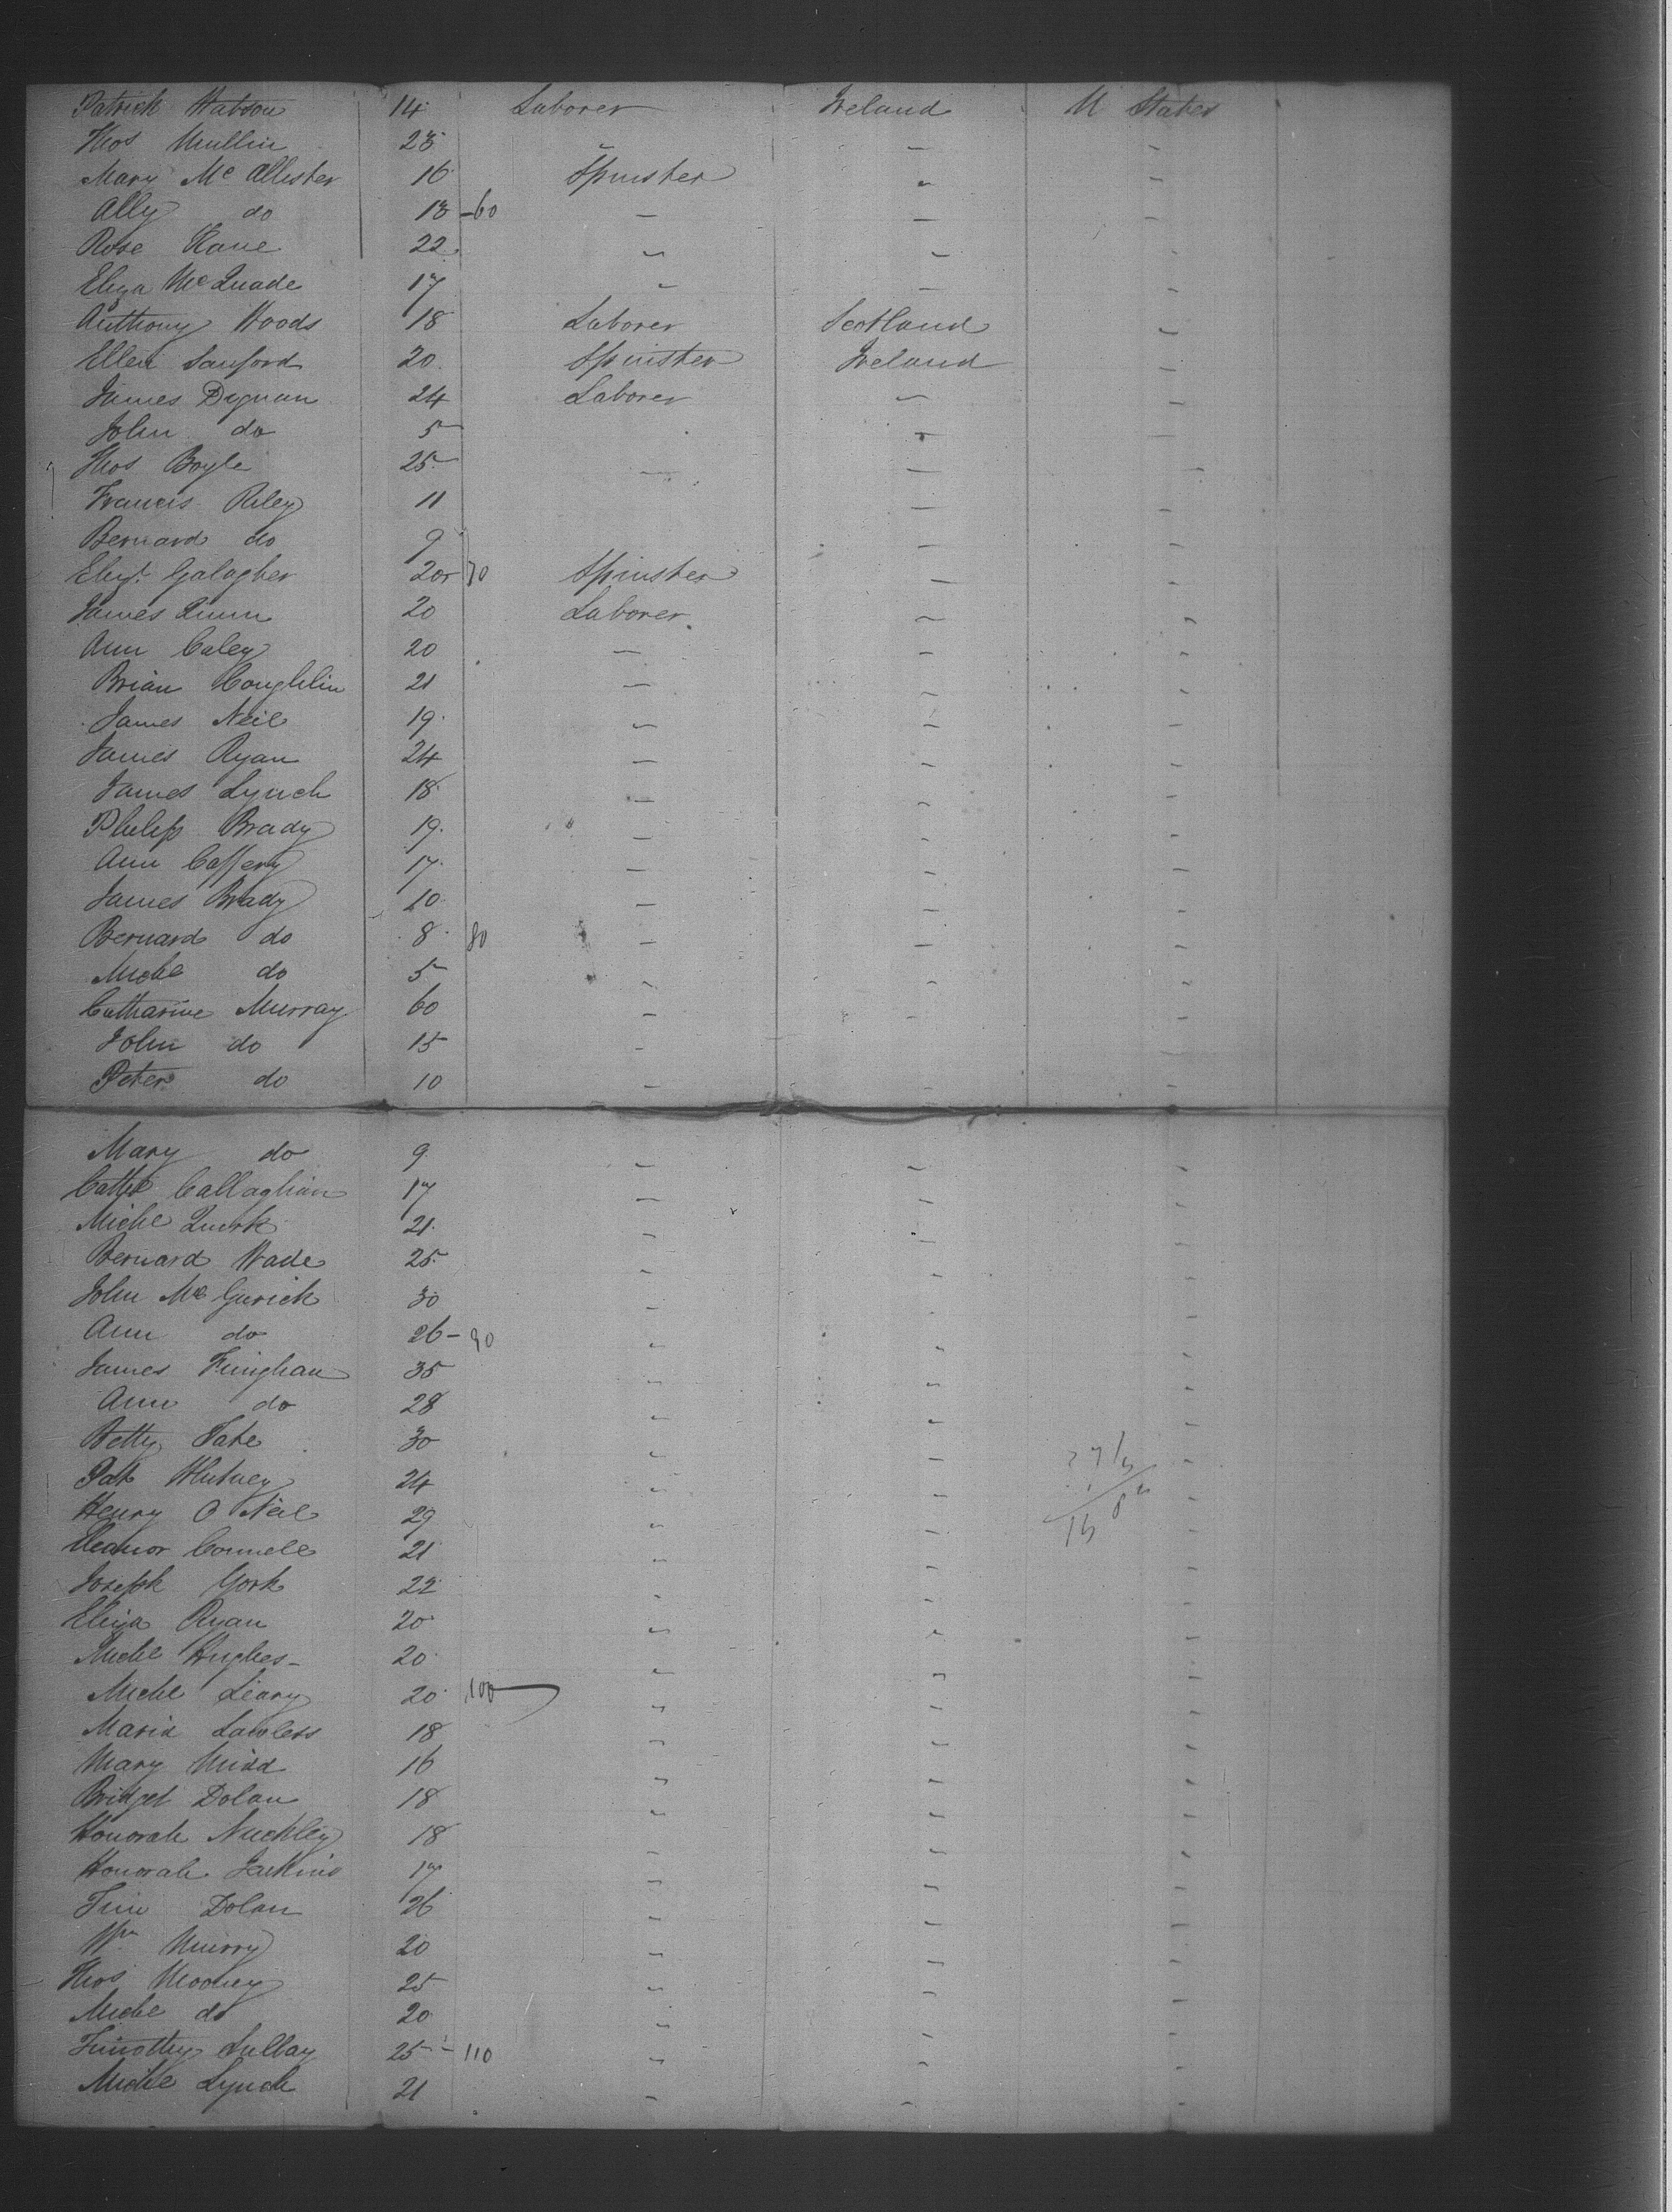 Patrick Watson 14 Laborer Ireland U States
Thos Mullin 23 " — -
Mary Mc Allister 16 Spinster " -
Ally do 13 -60 — — -
Rose Kane 22 " " -
Eliza McQuade 17 " — -
Anthony Woods 18 Laborer Scotland -
Ellen Sanford 20 Spinster Ireland -
James Dignan 24 Laborer " -
John do 5 — -
Thos Boyle 25 — — -
Francis Riley 11 — -
Bernard do 9 — -
Elizt Galagher 20 70 Spinster — -
James Quinn 20 Laborer — -
Ann Caley 20 — — -
Brian Coughlin 21 — — -
James Neil 19 — — -
James Ryan 24 — — -
James Lynch 18 — — -
Philip Brady 19 — — -
Ann Caffery 17 — — -
James Brady 10 — — -
Bernard do 8 80 — — -
Michl do 5 — — -
Catharine Murray 60 — — -
John do 15 - -
Peter do 10 — — -
Mary do 9 — — -
Cathe Callaghan 17 — — -
Michl Quirk 21 — — -
Bernard Wade 25 — — -
John Mc Gurick 30 — — -
Ann do 26 - 90 " " -
James Finghan 35 " " -
Ann do 28 " " -
Betty Tate 30 " — -
Patk Whitney 24 " " -
Henry O Neil 29 " — -
Eleanor Connell 21 " — -
Joseph York 22 " — -
Eliza Ryan 20 " " -
Michl Hughes 20 " " -
Michl Leary 20 100 " " -
Maria Lawless 18 " " -
Mary 16 " " -
Bridget Dolan 18 " " -
Honorah 18 — " -
Honorah 17 " " -
Tim Dolan 26 " " -
Wm Murry 20 " " -
Thos Mooney 25 " " -
Michl do 20 " -
Timothy 25 - 110 " " -
Michl Lynch 21 " " -